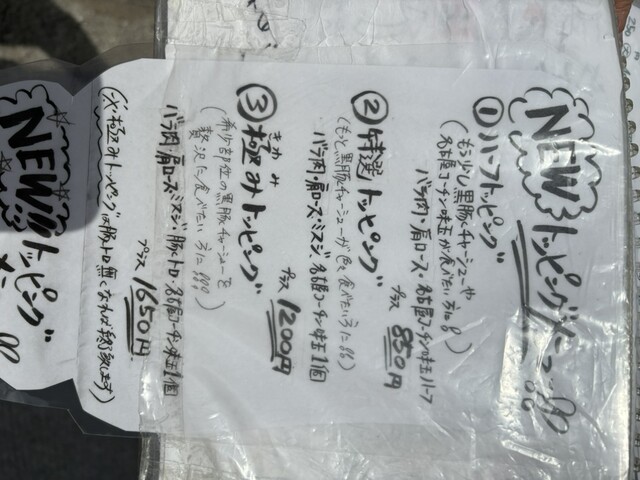 NEWトッピングだョ!!
①ハーフトッピング
(もう少し黒豚チャーシューや
名古屋コーチン味玉が食べたい方に!!)
バラ肉・肩ロース・名古屋コーチン味玉ハーフ
プラス 850円
②特選トッピング
(もっと黒豚チャーシューが色々食べたい方に!!)
バラ肉・肩ロース・ミスジ・名古屋コーチン味玉1個
プラス 1200円
③極みトッピング
きわみ
(希少部位の黒豚チャーシューを
贅沢に食べたい方に!!)
バラ肉・肩ロース・ミスジ・豚トロ・名古屋コーチン味玉1個
プラス 1650円
(※極みトッピングは豚トロ無くなれば終了致します)
NEW!!トッピング